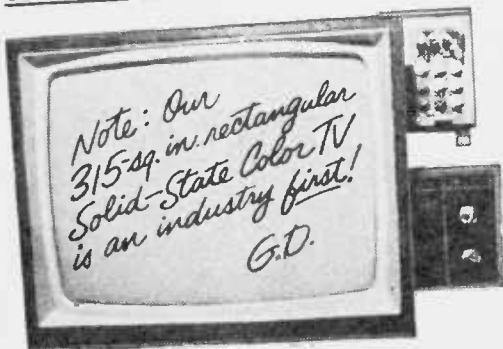 Note: Our
315-sq. in. rectangular
Solid-State Color TV
is an industry first!
G.D.